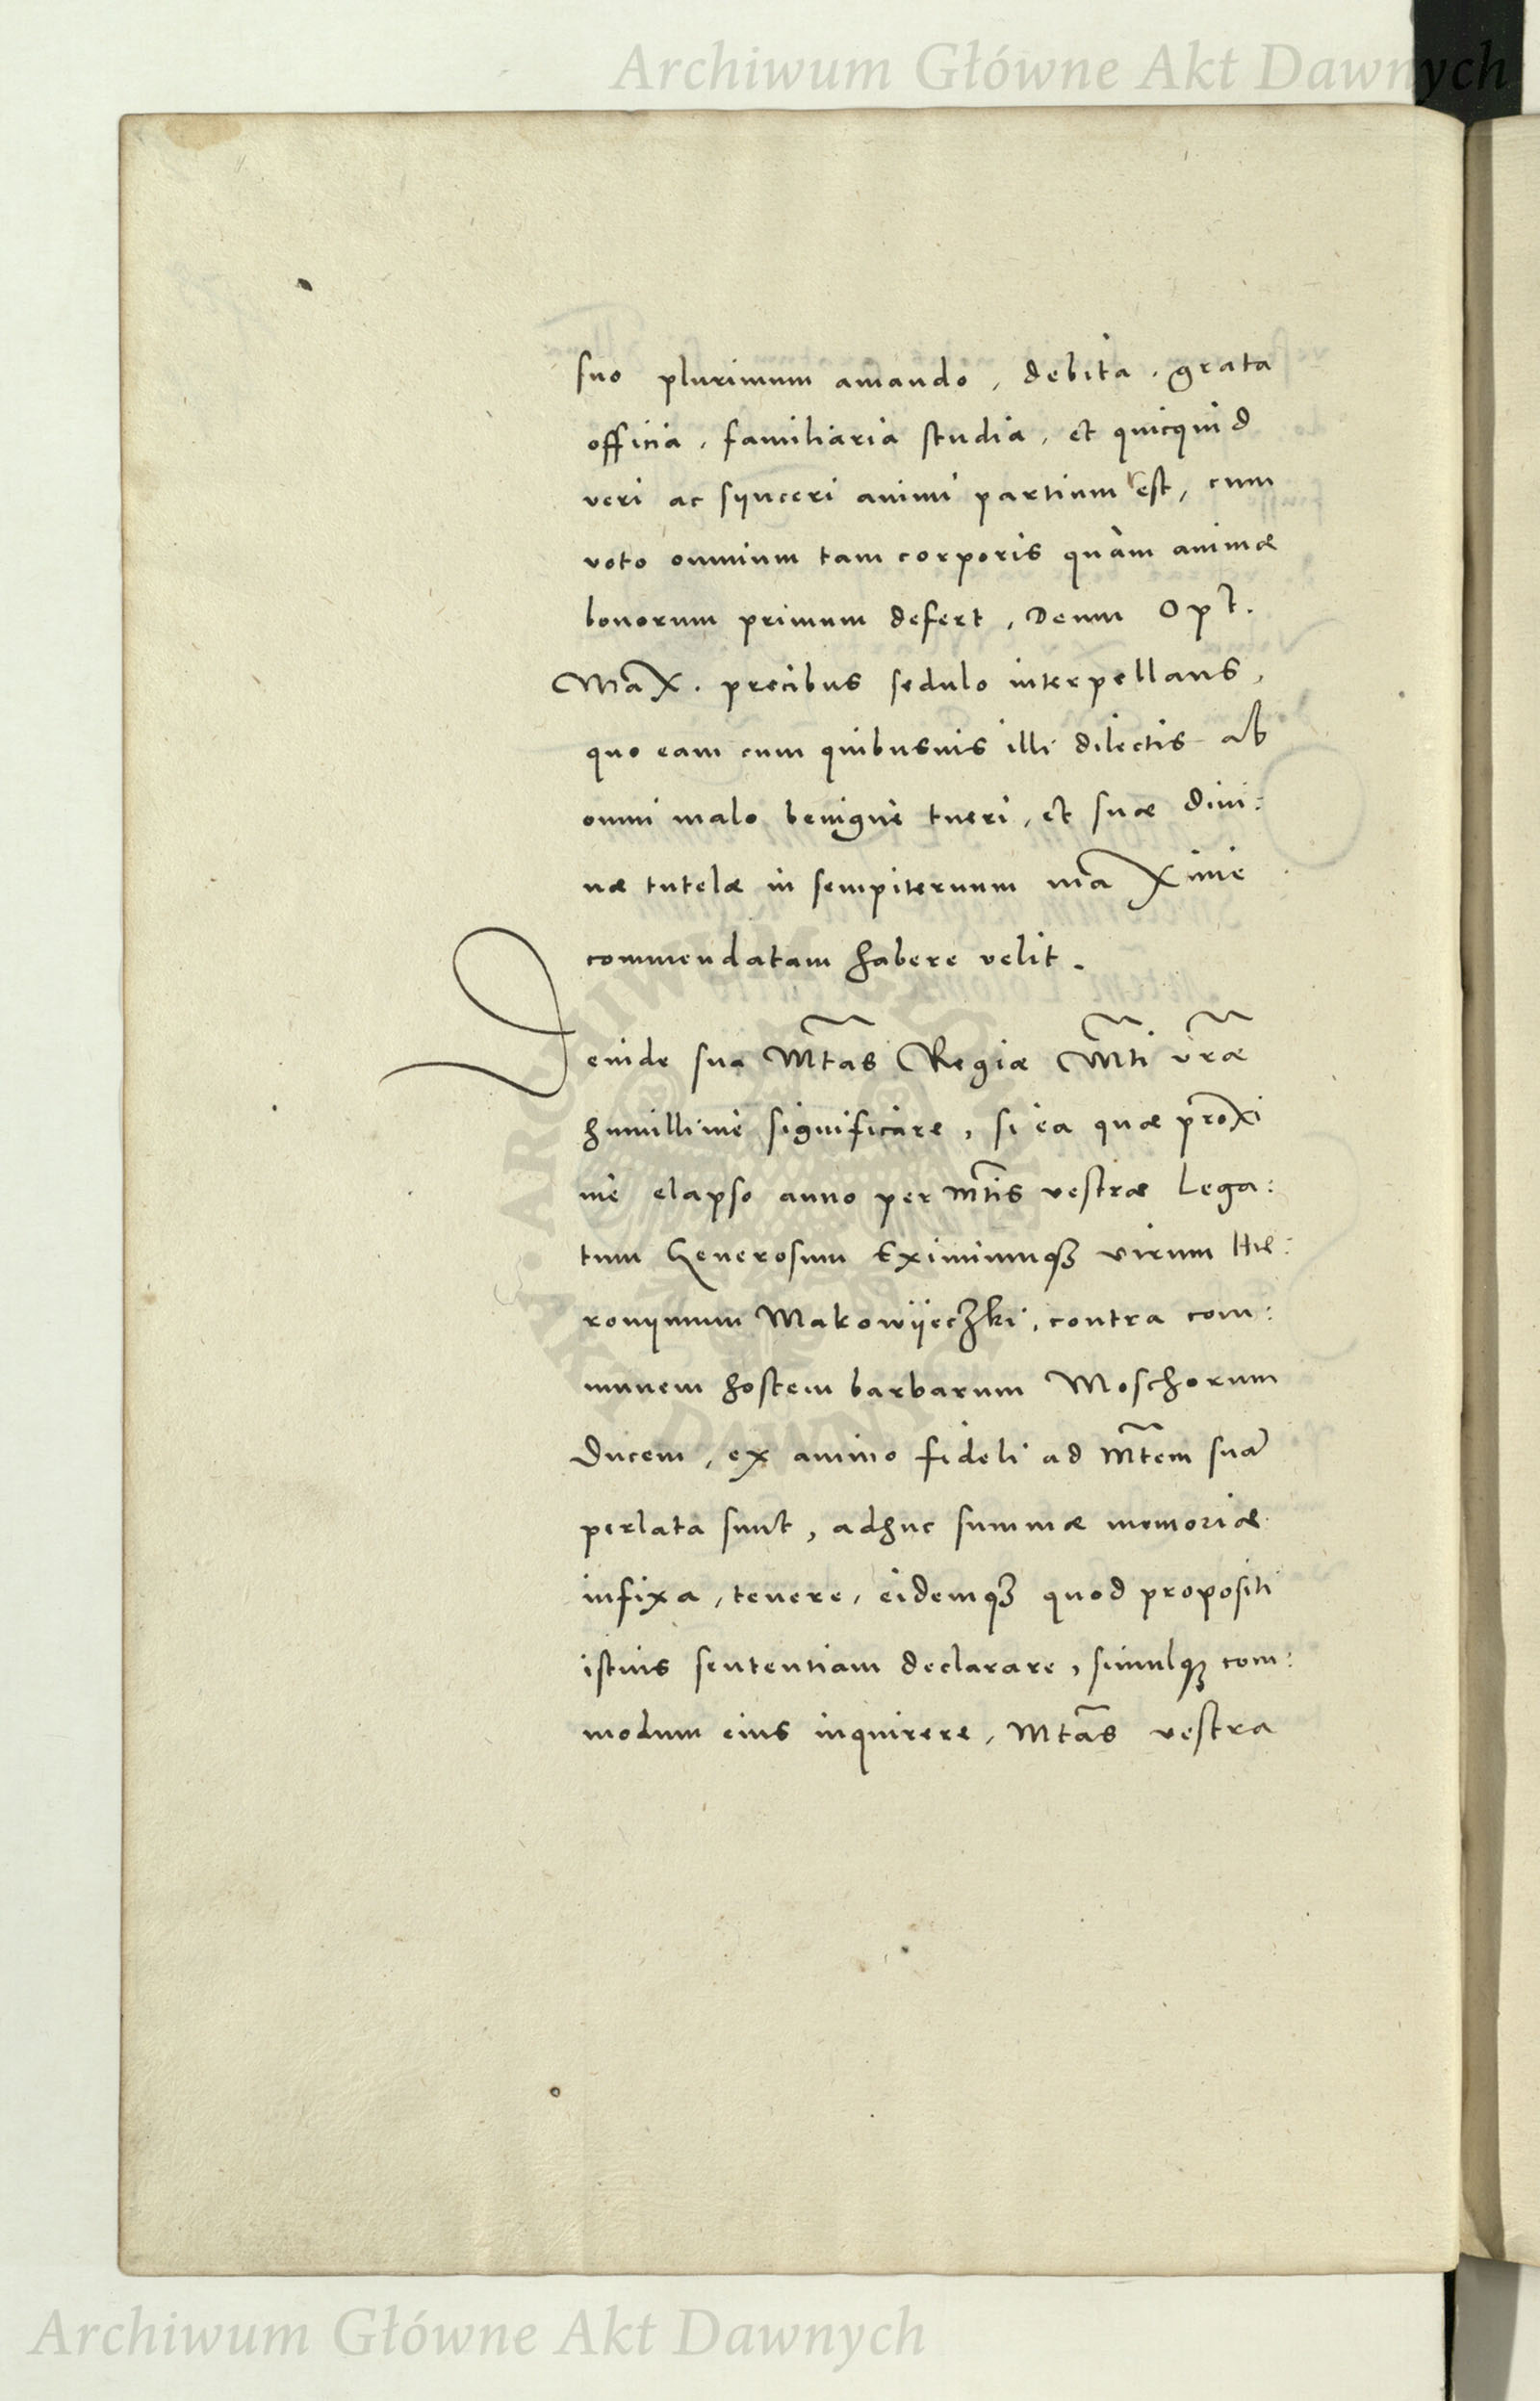 Archiwum Główne Akt Dawnych
suo plurimum amando, debita, grata
officia, familiaria studia, et quicquid
veri ac synceri animi partium est, cum
voto omnium tam corporis quàm animæ
bonorum primum defert, Deum Opt.
Max. precibus sedulo interpellans,
quo eam cum quibusuis illi dilectis ab
omni malo benignè tueri, et suæ diui:
næ tutelæ in sempiternum maxime
commendatam habere velit.
Deinde sua Mtas Regiæ Mti vræ
humillimè significare, si ea quæ proxi
mè elapso anno per Mtis vestræ Lega:
tum Generosum Eximiumq3 virum Hie:
ronymum Makowyeczki, contra com:
munem hostem barbarum Moschorum
Ducem, ex animo fideli ad Mtem suā
perlata sunt, adhuc summæ memoriæ
infixa, tenere, eidemq3 quod propositi
istuis sententiam declarare, simulq3 com:
modum eius inquirere, Mtas vestra
ARCHIWUM GŁÓWNE AKT DAWNYCH
Archiwum Główne Akt Dawnych